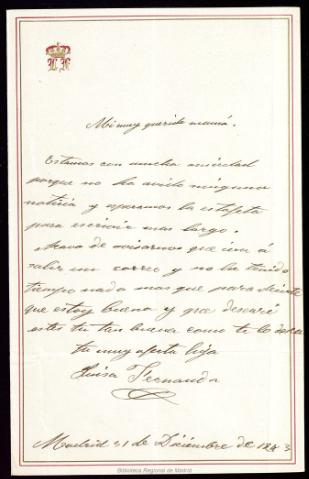 L F
Mi muy querida mamá.
Estamos con mucha ansiedad
porque no ha avido ninguna
noticia y esperamos la estafeta
para escrivir mas largo.
Acava de avisarnos que iva á
salir un correo y no ha tenido
tiempo nada mas que para decirte
que estoy buena y que desearé
estés tu tan buena como te lo desea
tu muy afecta hija
Luisa Fernanda
Madrid 31 de Diciembre de
Biblioteca Regional de Madrid